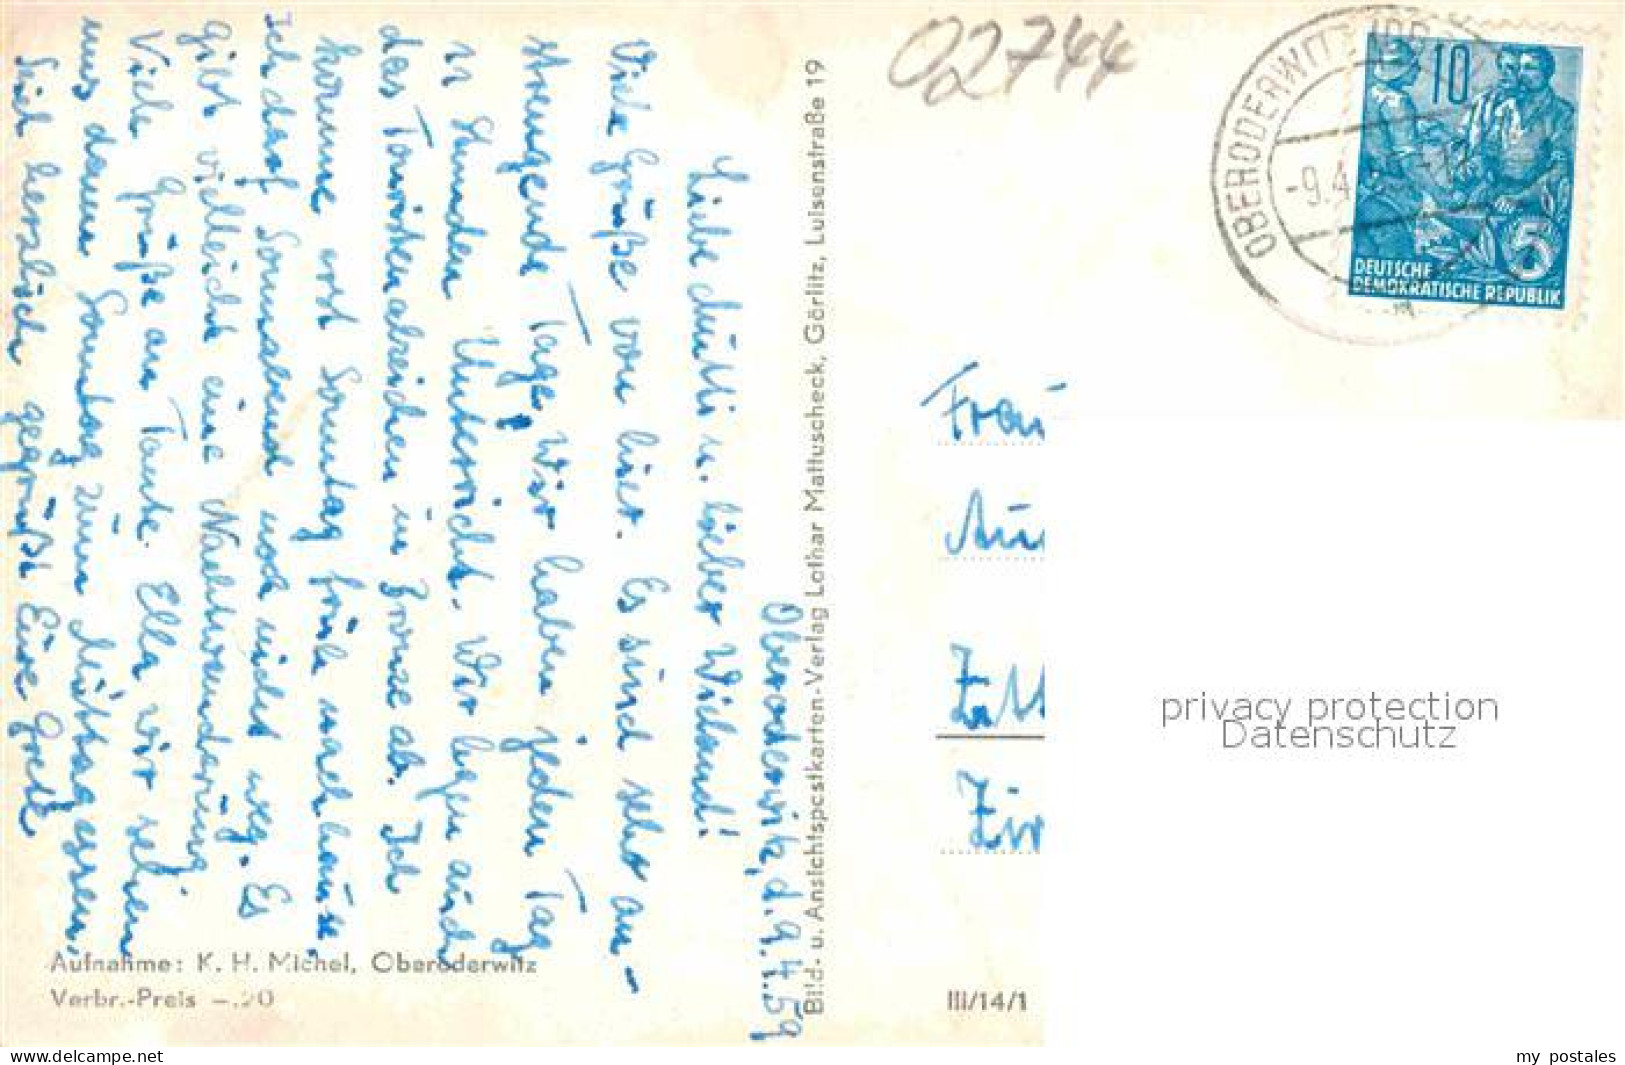 02744
OBERODERWITZ
-9.4
10
5
DEUTSCHE
DEMOKRATISCHE REPUBLIK
Oberoderwitz, d. 9.4.59
Liebe Mutti u. lieber Wieland!
Viele Grüße von hier. Es sind sehr an-
strengende Tage. Wir haben jeden Tag
11 Stunden Unterricht. Wir legen auch
das Touristenabzeichen in Bronze ab. Ich
komme erst Sonntag früh nachhause.
Ich darf Sonnabend noch nicht weg. Es
gibt vielleicht eine Nachtwanderung.
Viele Grüße an Tante Ella, wir sehen
uns dann Sonntag zum Mittagessen.
Seid herzlich gegrüßt Eure Grete
Bild- u. Ansichtspostkarten-Verlag Lothar Mattuscheck, Görlitz, Luisenstraße 19
Aufnahme: K. H. Michel, Oberoderwitz
Verbr.-Preis -.20
III/14/1
Frau
Zitt
Zir
privacy protection
Datenschutz
www.delcampe.net
my_postales